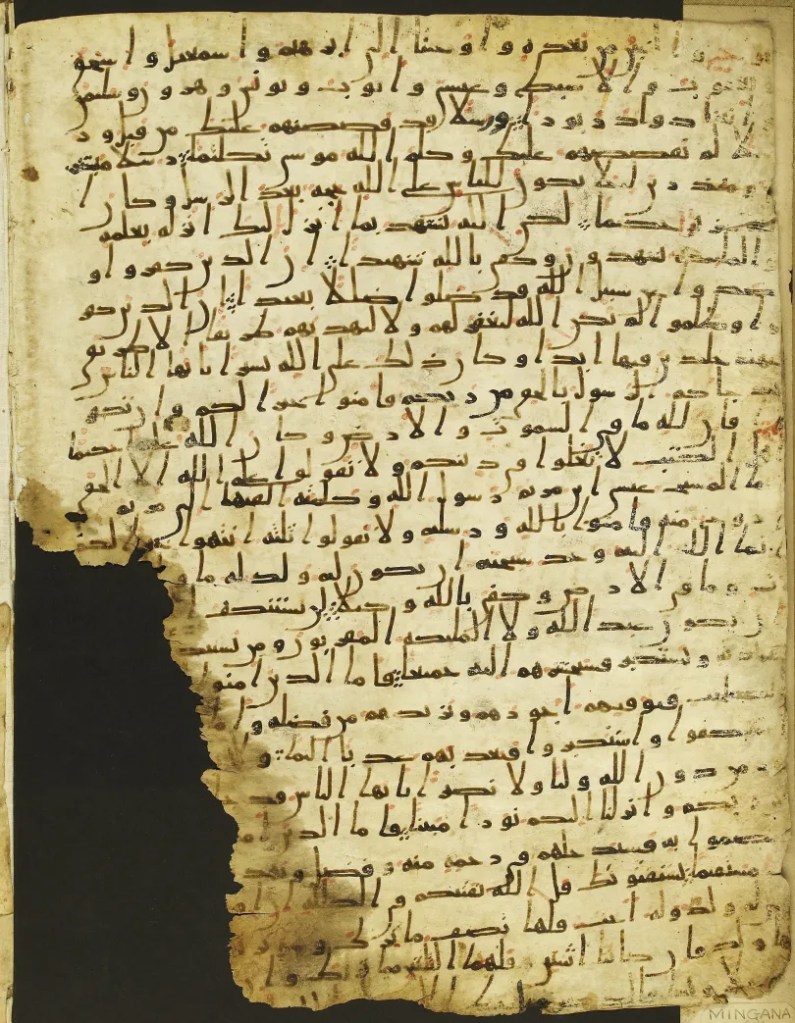 من بعده و اوحينا الى ابرهيم و اسمعيل و اسحق
و يعقوب و الاسبط و عيسى و ايوب و يونس و هرون و سليمن
و اتينا داود زبورا و رسلا قد قصصنهم عليك من قبل و ر
سلا لم نقصصهم عليك و كلم الله موسى تكليما رسلا مبشر
ين و منذرين لئلا يكون للناس على الله حجة بعد الرسل و كان ا
لله عزيزا حكيما لكن الله يشهد بما انزل اليك انزله بعلمه
و الملئكة يشهدون و كفى بالله شهيدا ان الذين كفروا و
صدوا عن سبيل الله قد ضلوا ضللا بعيدا ان الذين كفر
وا و ظلموا لم يكن الله ليغفر لهم و لا ليهديهم طريقا الا طريق
جهنم خلدين فيها ابدا و كان ذلك على الله يسيرا يايها الناس
قد جاكم الرسول بالحق من ربكم فامنوا خيرا لكم و ان تكفر
وا فان لله ما في السموت و الارض و كان الله عليما حكيما
الكتب لا تغلوا في دينكم و لا تقولوا على الله الا الحق
انما المسيح عيسى ابن مريم رسول الله و كلمته القيها الى مريم
و روح منه فامنوا بالله و رسله و لا تقولوا ثلثة انتهوا خيرا لكم
انما الله اله وحد سبحنه ان يكون له ولد له ما في
ت و ما في الارض و كفى بالله وكيلا لن يستنكف ا
ان يكون عبدا لله و لا الملئكة المقربون و من يستنكف
عبادته و يستكبر فسيحشرهم اليه جميعا فاما الذين امنوا
الصلحت فيوفيهم اجورهم و يزيدهم من فضله و اما
استنكفوا و استكبروا فيعذبهم عذابا اليما و
من دون الله وليا و لا نصيرا يايها الناس قد جا
ربكم و انزلنا اليكم نورا مبينا فاما الذين امنوا
و اعتصموا به فسيدخلهم في رحمة منه و فضل و يهد
مستقيما يستفتونك قل الله يفتيكم في الكللة ان امرو
له ولد و له اخت فلها نصف ما ترك و هو يرثها
لها ولد فان كانتا اثنتين فلهما الثلثن مما ترك و ان
MINGANA